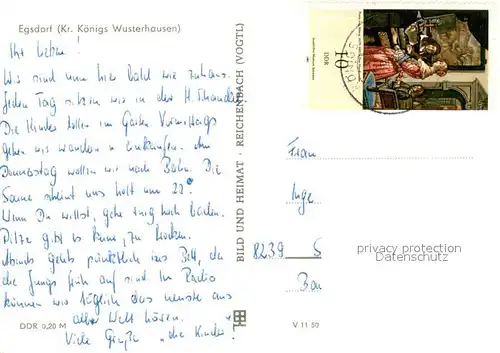 Egsdorf (Kr. Königs Wusterhausen)
Ihr Lieben!
Wir sind nun hier bald wie zuhaus.
Jeden Tag sitzen wir in der
Die Kinder tollen im Garten Vormittags
gehen wir wandern o. Einkaufen. Am
Donnerstag wollen wir nach Bahn. Die
Sonne scheint uns holt um 28°.
Wenn Du willst, gehe ruhig noch baden.
Pilze gibt es keine, zu trocken.
Abends gehts pünktlich ins Bett, da
die Jungs früh auf sind. Im Radio
können wir täglich das neuste aus
aller Welt hören.
Viele Grüße "die Kinder"
DDR 0,20 M
BILD UND HEIMAT · REICHENBACH (VOGTL)
V 11 50
10
DDR
Frau
Inge
8239 S
Bau
privacy protection
Datenschutz